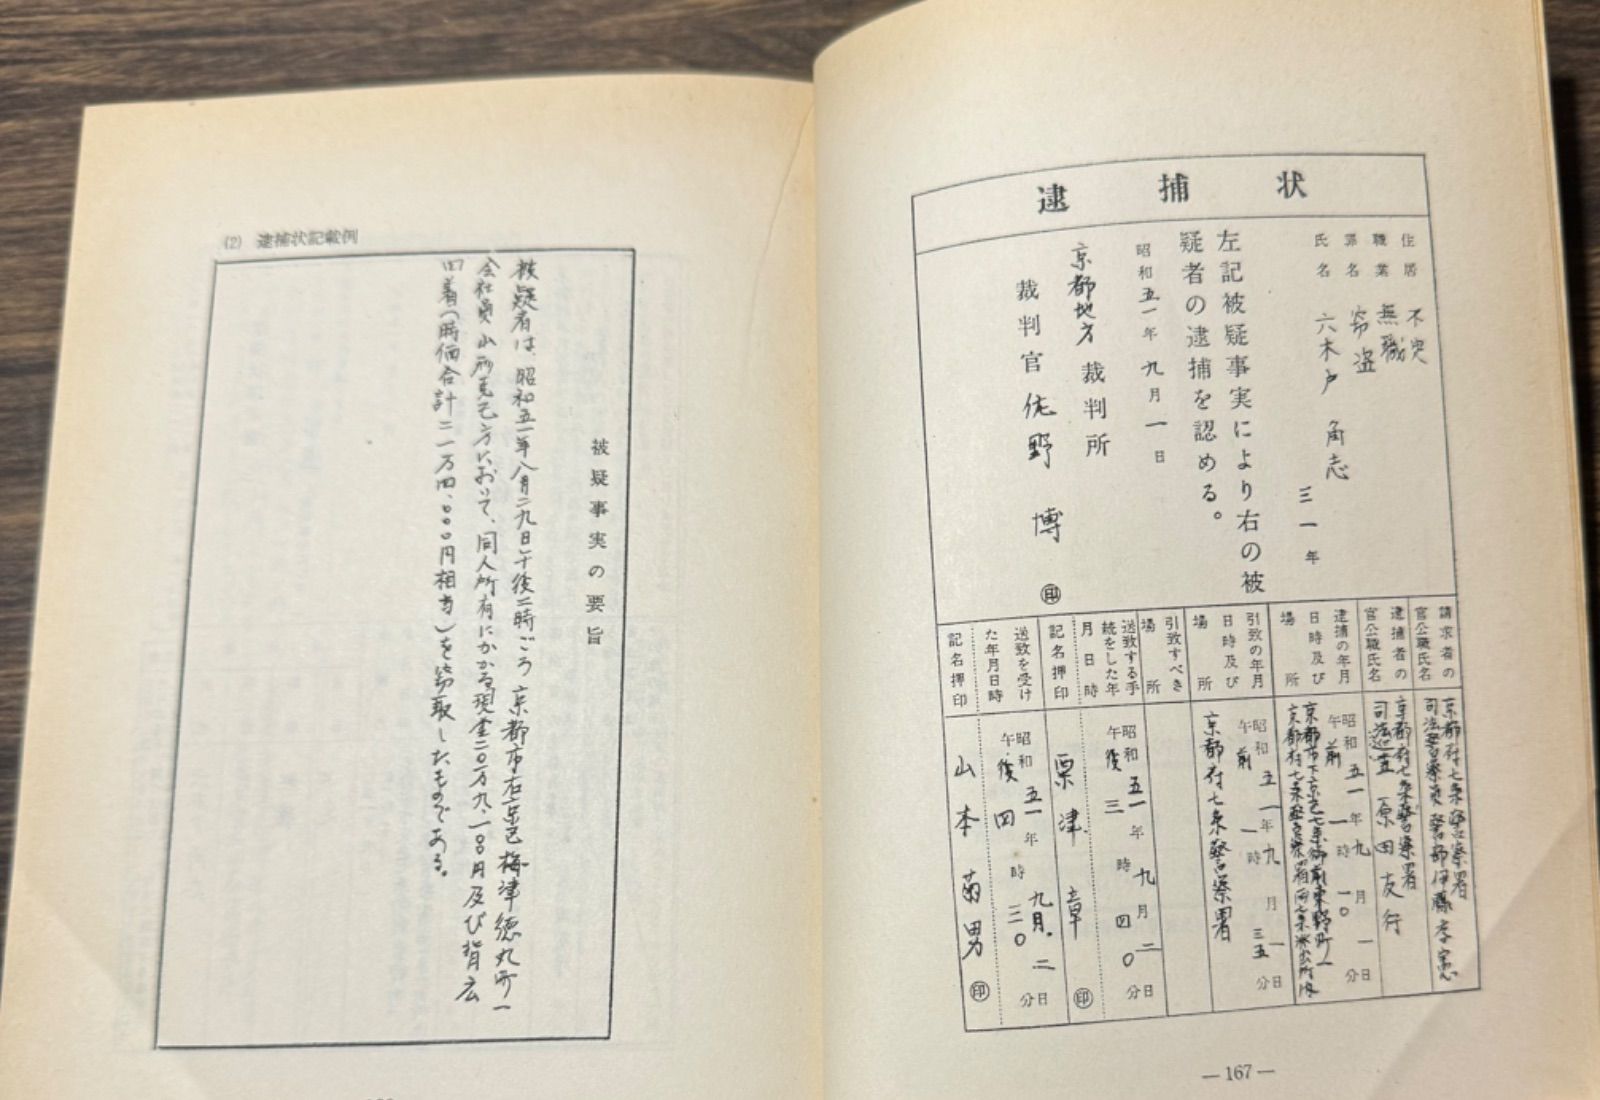 逮捕状
住居 不定
職業 無職
罪名 窃盗
氏名 六木戸 角志
三一年
左記被疑事実により右の被
疑者の逮捕を認める。
昭和五一年九月一日
京都地方裁判所
裁判官 佐野 博 ㊞
請求者の官公職氏名
京都府七条警察署
司法警察員 警部 伊藤孝憲
逮捕者の官公職氏名
京都府七条警察署
司法巡査 原田友行
逮捕の年月日時及び場所
昭和五一年九月一日
午前一時一〇分
京都市下京区七条御前東野町一
京都府七条警察署西七条派出所内
引致の年月日時及び場所
昭和五一年九月一日
午前一時三五分
京都府七条警察署
引致すべき場所
送致する手続をした年月日時
昭和五一年九月二日
午後三時四〇分
記名押印
粟津 章 ㊞
送致を受けた年月日時
昭和五一年九月二日
午後四時三〇分
記名押印
山本 菊男 ㊞
— 167 —
(2) 逮捕状記載例
被疑事実の要旨
被疑者は、昭和五一年八月二九日午後二時ごろ 京都市右京区梅津徳丸町一
会社員 山 方において、同人所有にかかる現金二〇万九、一〇〇円及び背広
四着(時価合計二一万四、〇〇〇円相当)を窃取したものである。